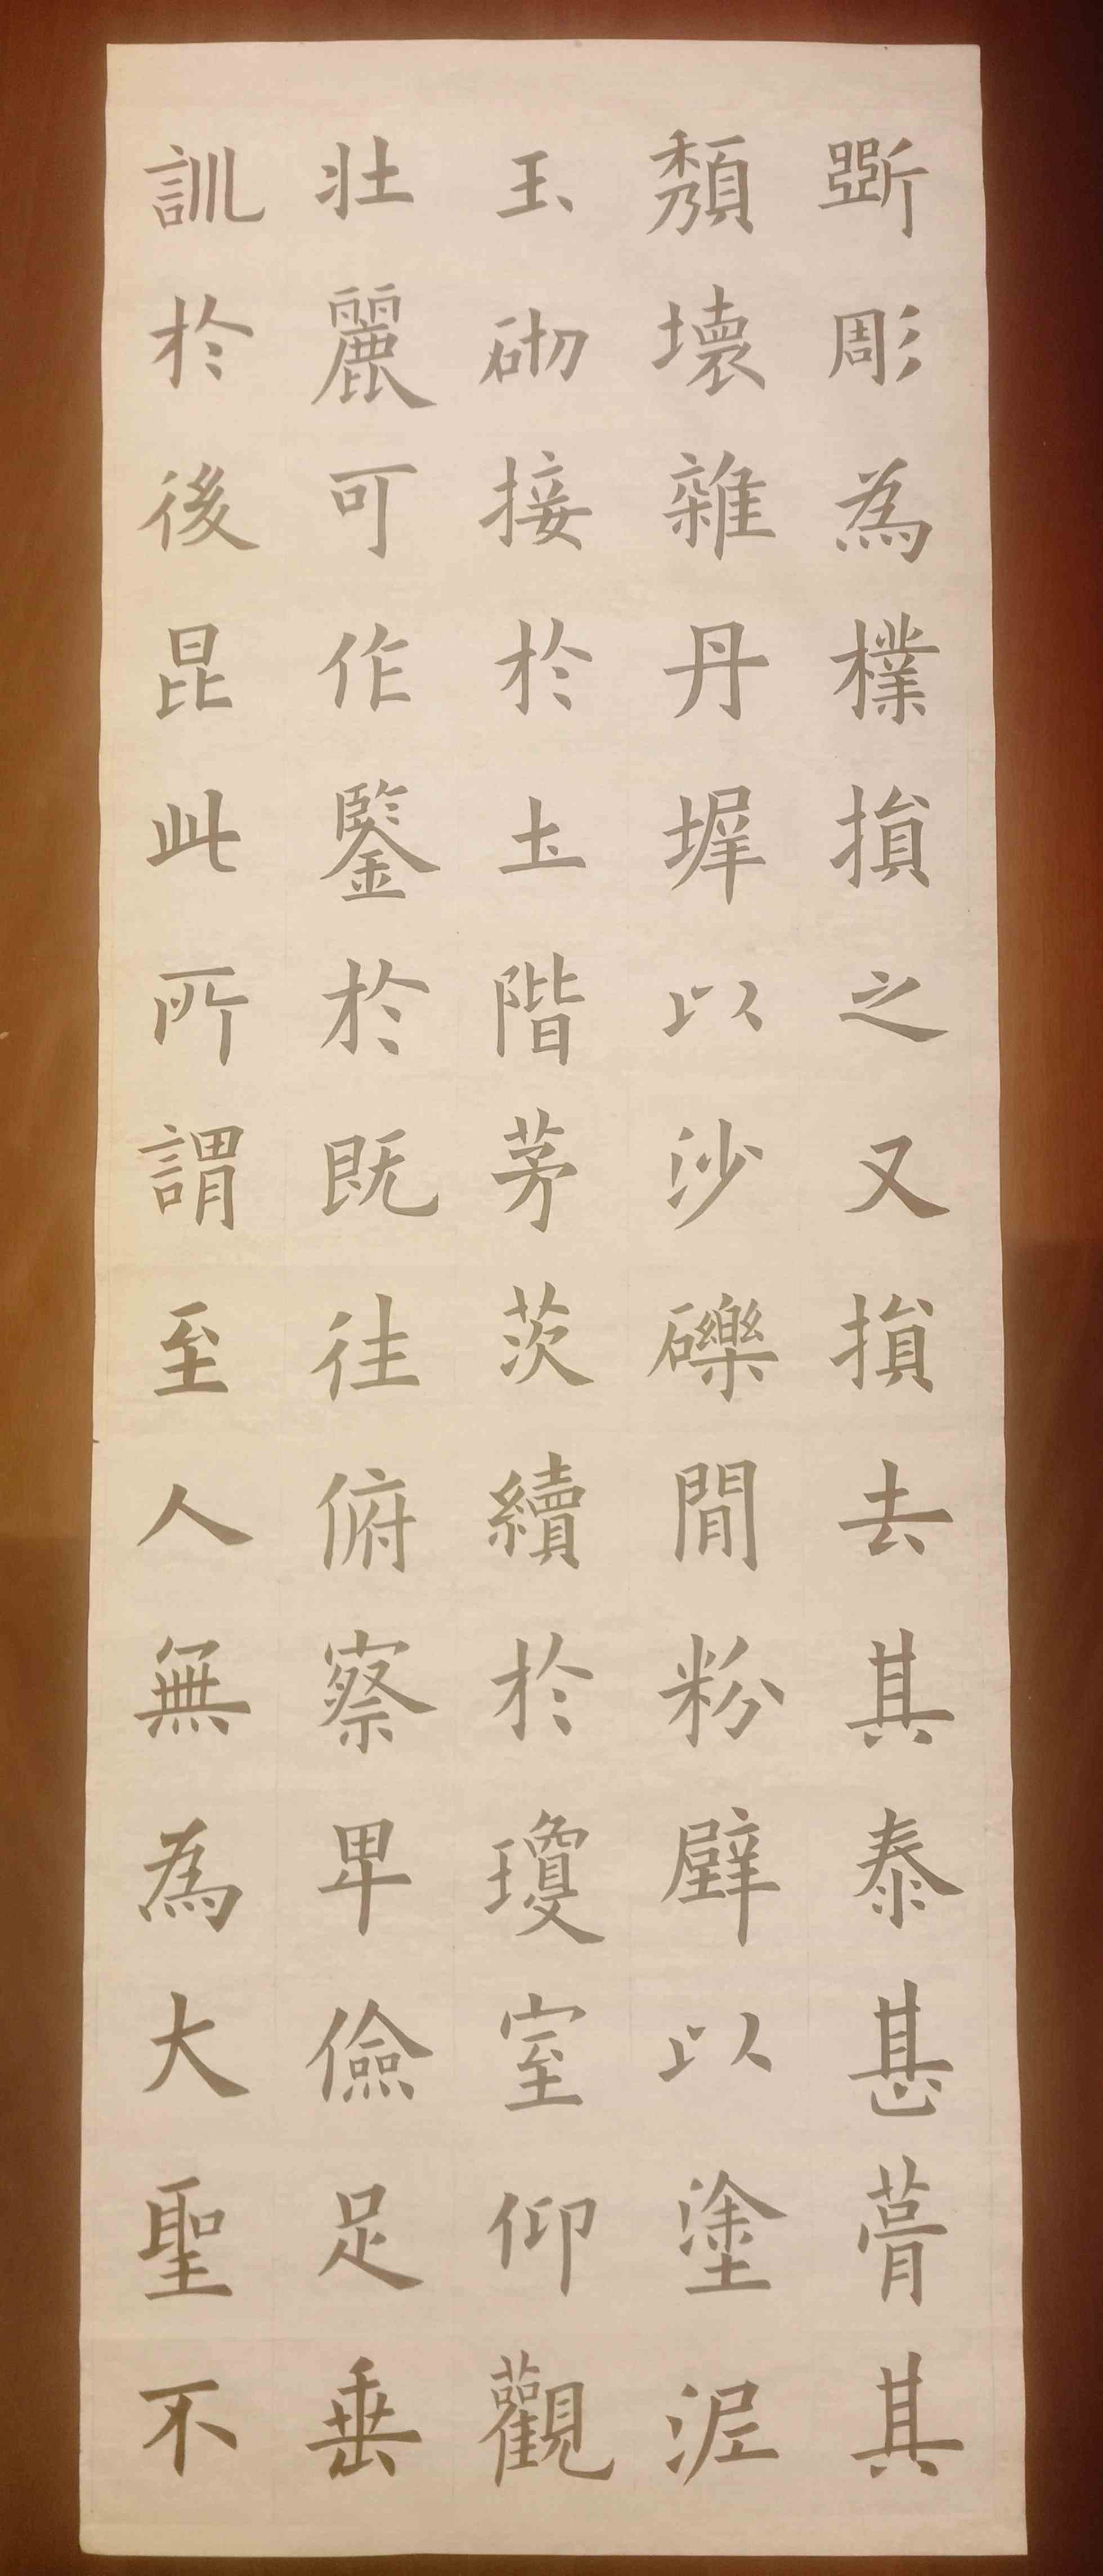 斲彫為樸損之又損去其泰甚葺其
頹壞雜丹墀以沙礫間粉壁以塗泥
玉砌接於土階茅茨續於瓊室仰觀
壯麗可作鑒於既往俯察卑儉足垂
訓於後昆此所謂至人無為大聖不